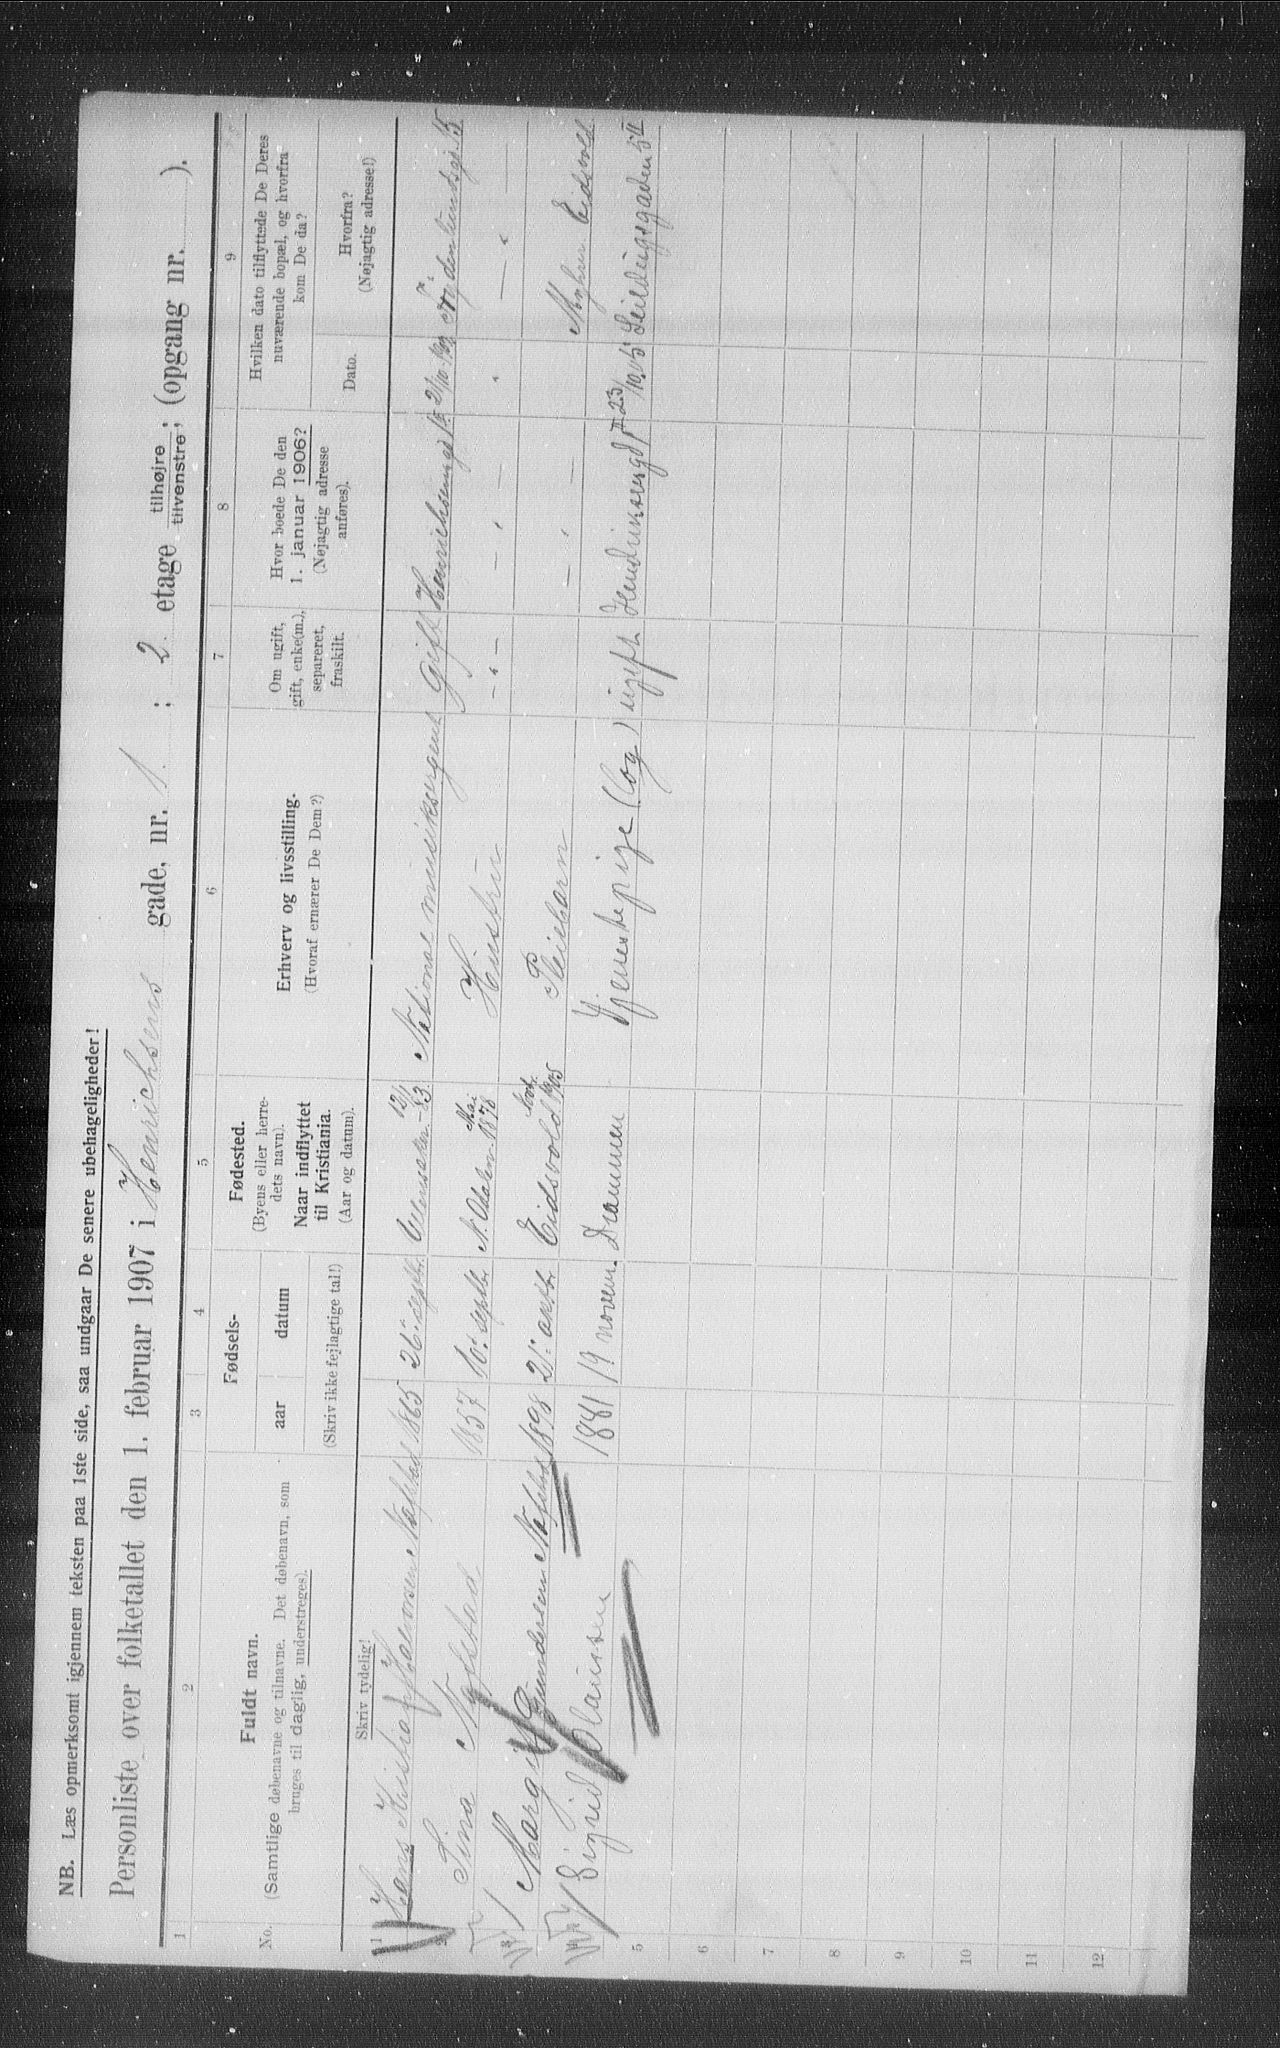 NB. Læs opmerksomt igjennem teksten paa 1ste side, saa undgaar De senere ubehageligheder!
Personliste over folketallet den 1. februar 1907 i Henrichsens gade, nr. 1. ; 2. etage tilhøjre tilvenstre; (opgang nr. ).
1 2 3 4 5 6 7 8 9
No.
Fuldt navn.
(Samtlige døbenavne og tilnavne. Det døbenavn, som
bruges til daglig, understreges).
Fødsels-
aar datum
Fødested.
(Byens eller herre-
dets navn).
Naar indflyttet
til Kristiania.
(Aar og datum).
Erhverv og livsstilling.
(Hvoraf ernærer De Dem?)
Om ugift,
gift, enke(m.),
separeret,
fraskilt.
Hvor boede De den
1. januar 1906?
(Nøjagtig adresse
anføres).
Hvilken dato tilflyttede De Deres
nuværende bopæl, og hvorfra
kom De da?
Dato.
Hvorfra?
(Nøjagtig adresse!)
Skriv tydelig!
(Skriv ikke fejlagtige tal!)
1 Hans Kristiaf Halvorsen Nafstad 1865 26' septbr. Ullensaker 12/1 -83. National musiksergent Gift Henrichsensgd 1. 21/10 Frydenlundsgd. 15
2 Sina Nafstad 1857 10' septbr N. Odalen Mai 1878 Hustru - " - - " - " - " -
3 Margit Gundersen Nafstad 1898 21' oktbr Eidsvold 1905 Pleiebarn - " - Myhrer Eidsvold
4 Sigrid Clausen 1881 19 novem. Drammen Tjenestepige (Log) ugift Hendriksensgd 1 II 23/10 05 Seildugsgaden 5 II
5
6
7
8
9
10
11
12